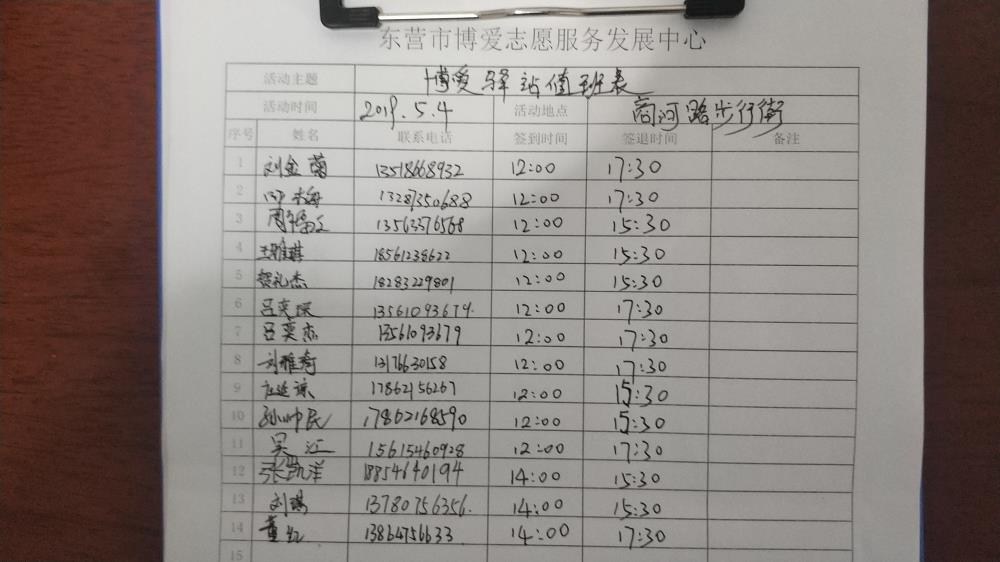 东营市博爱志愿服务发展中心
活动主题 博爱驿站值班表
活动时间 2019.5.4 活动地点 商河路步行街
序号 姓名 联系电话 签到时间 签退时间 备注
1 刘金菊 13518668932 12:00 17:30
2 梅 13287350688 12:00 17:30
3 13563376568 12:00 15:30
4 王雅琪 18561238622 12:00 15:30
5 贺礼杰 18283229801 12:00 15:30
6 吕奕琛 13561093679. 12:00 17:30
7 吕奕杰 13561093679 12:00 17:30
8 刘雅琦 13176630158 12:00 17:30
9 17862156267 12:00 15:30
10 孙帅民 17862168590 12:00 15:30
11 吴江 15615460928 12:00 17:30
12 张凯洋 18854640194 14:00 15:30
13 刘瑞 13780756356. 14:00 15:30
14 董红 13864756633 14:00 17:30
15